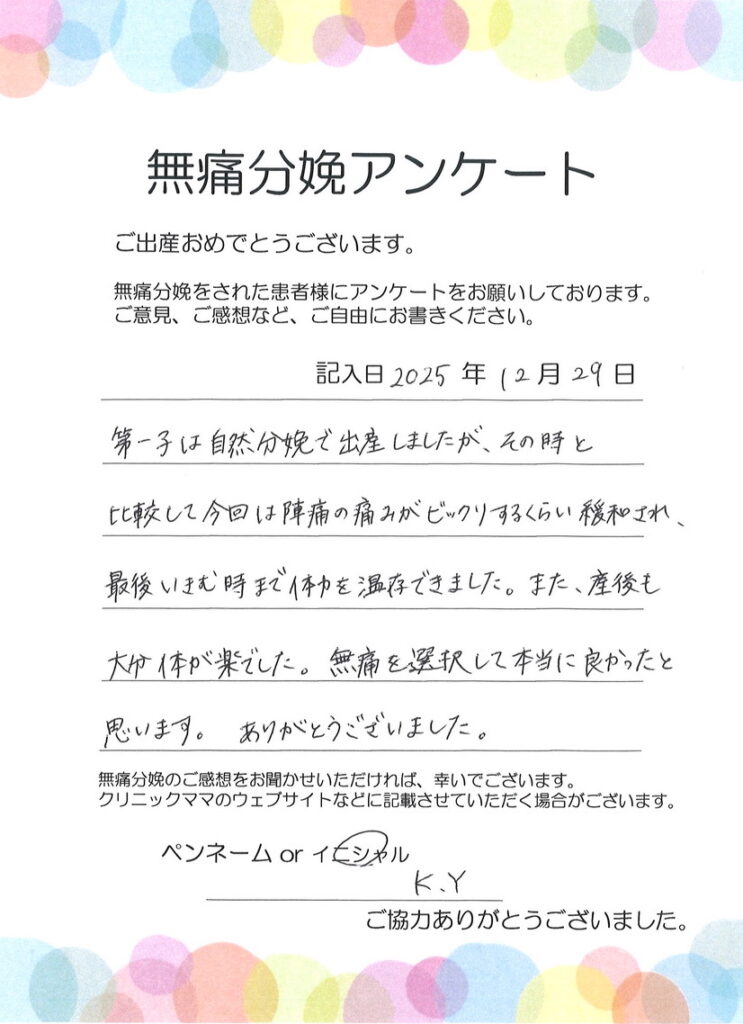 無痛分娩アンケート
ご出産おめでとうございます。
無痛分娩をされた患者様にアンケートをお願いしております。
ご意見、ご感想など、ご自由にお書きください。
記入日 2025 年 12 月 29 日
第一子は自然分娩で出産しましたが、その時と
比較して今回は陣痛の痛みがビックリするくらい緩和され、
最後いきむ時まで体力を温存できました。また、産後も
大分体が楽でした。無痛を選択して本当に良かったと
思います。 ありがとうございました。
無痛分娩のご感想をお聞かせいただければ、幸いでございます。
クリニックママのウェブサイトなどに記載させていただく場合がございます。
ペンネーム or イニシャル
K.Y
ご協力ありがとうございました。